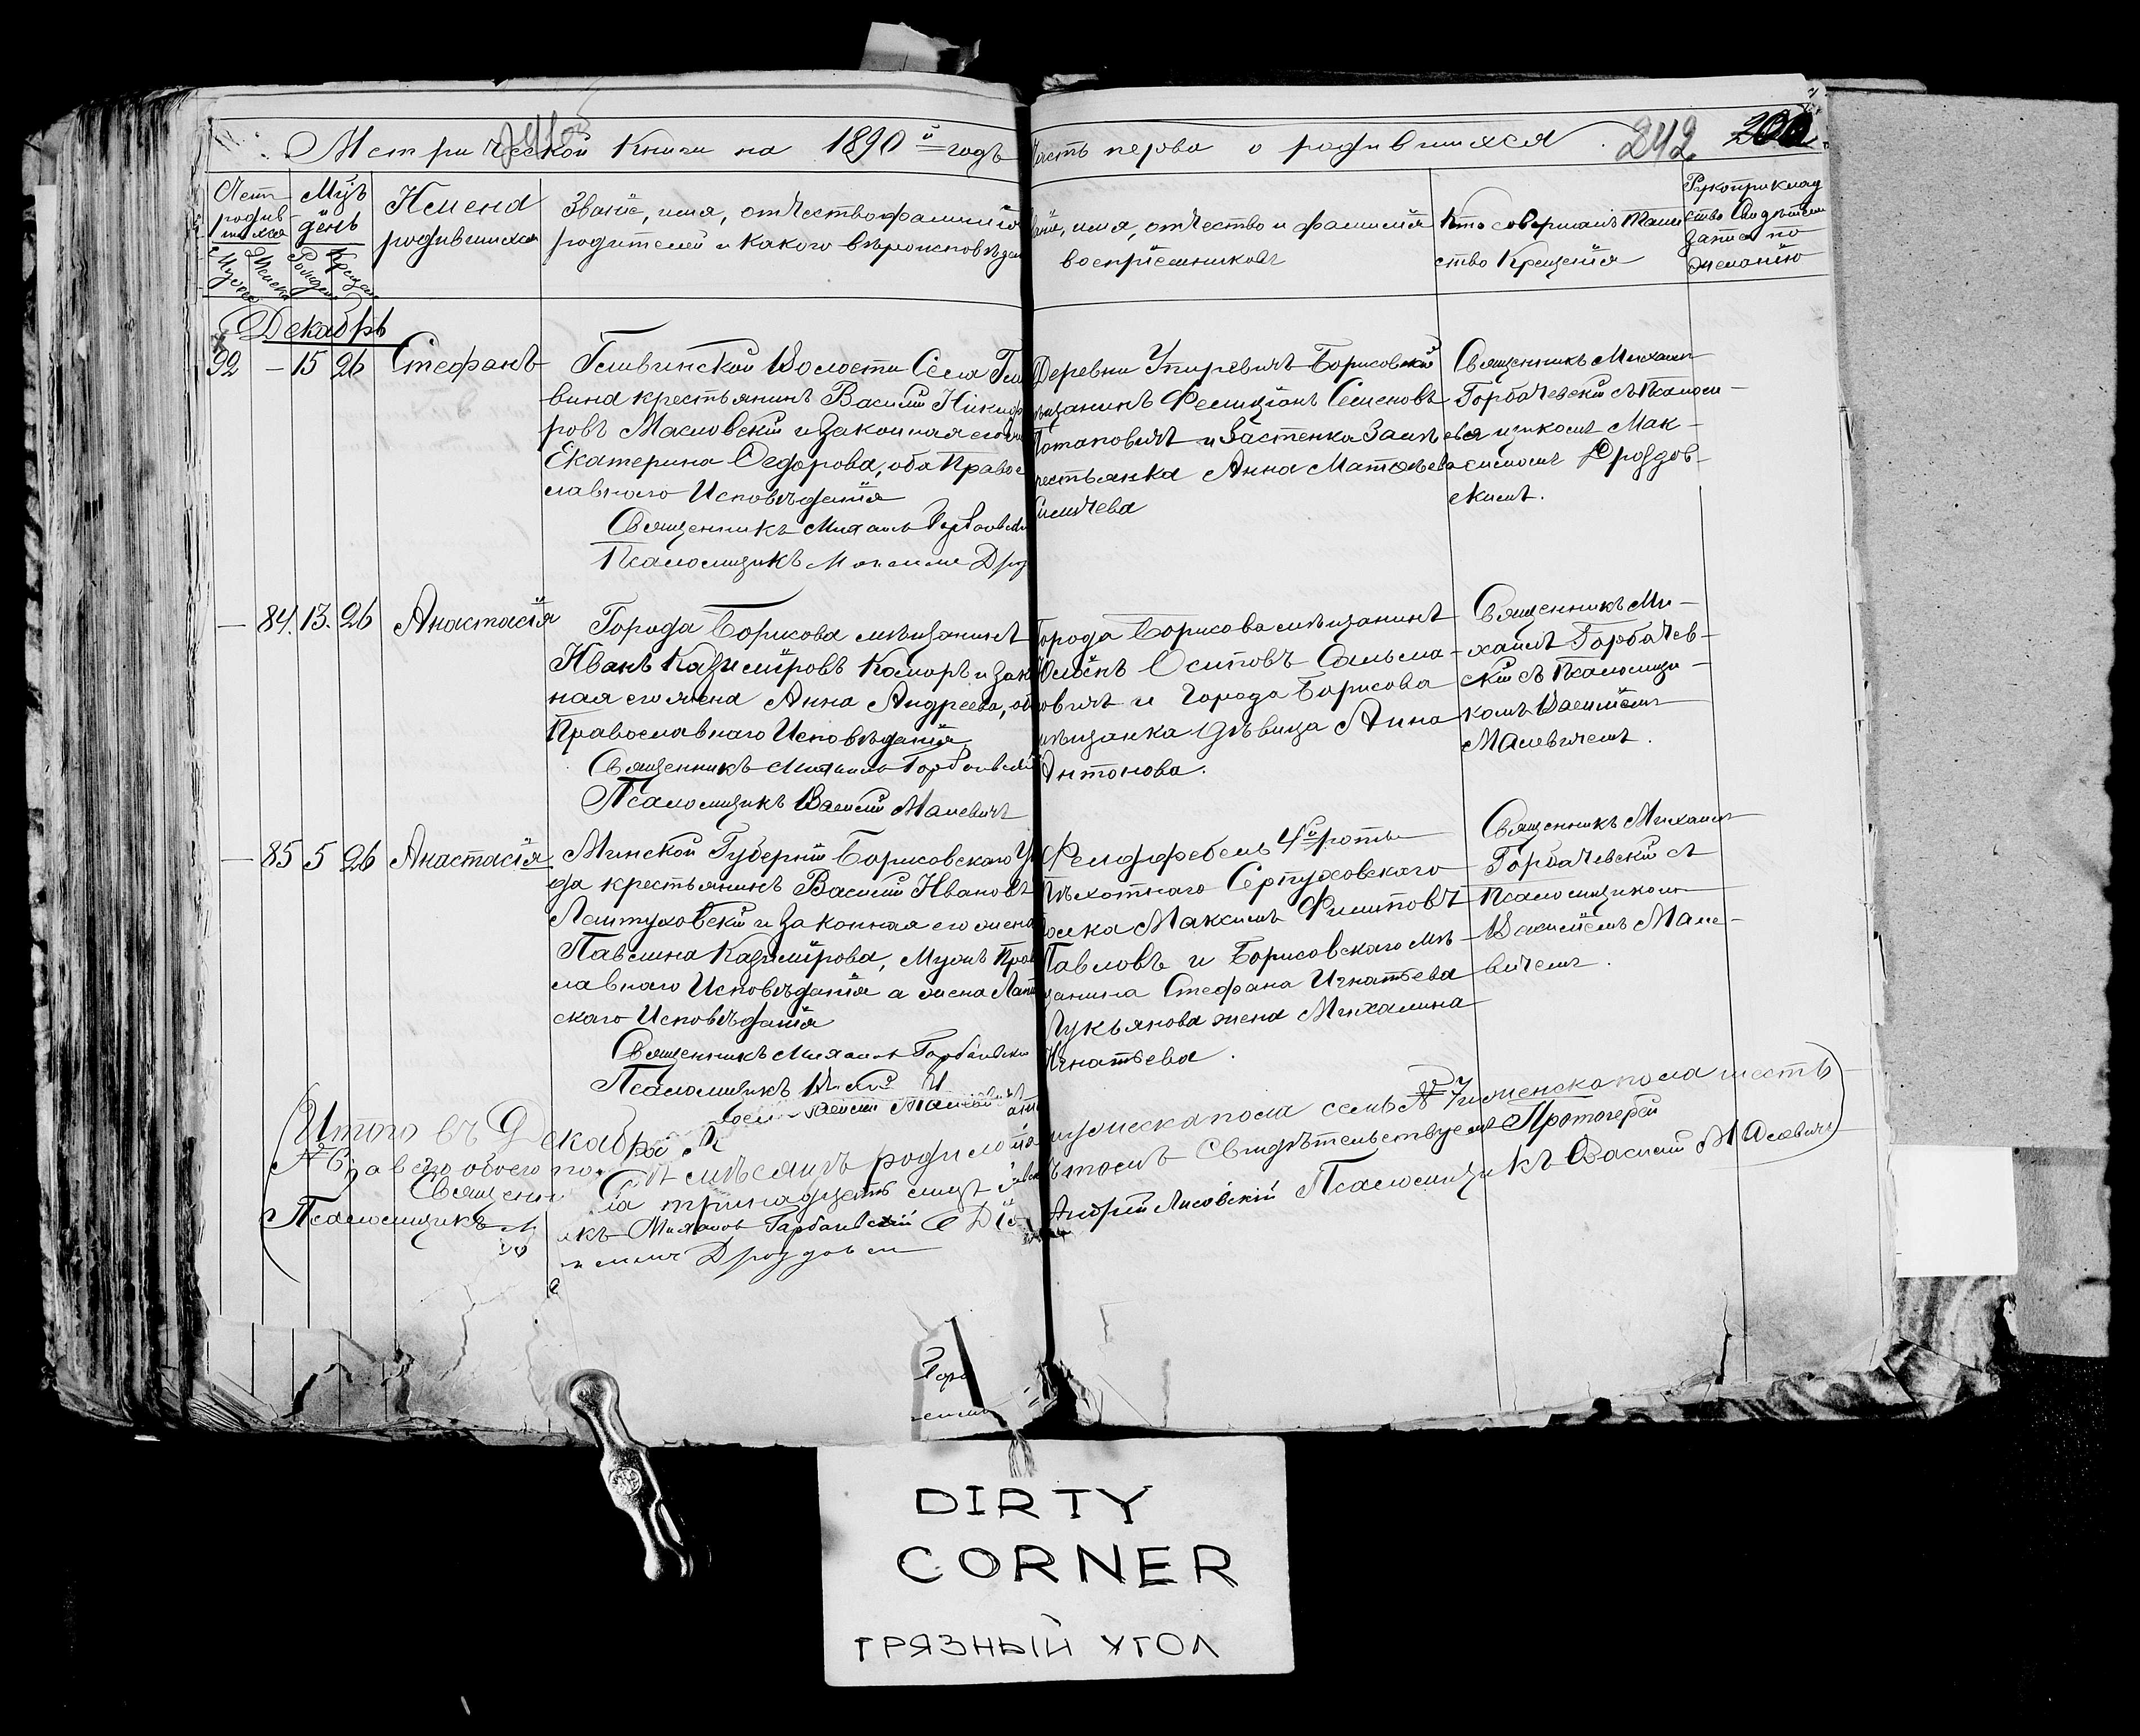 Метрической Книги на 1890 й годъ
Часть перва о родившихся 242
Счетъ родив-шихся
Мужеска
Женска
Мцъ
день
Рожден
Крещен
Имена
родившихся
Званіе, имя, отчество фамилія
родителей и какого вѣроисповѣдан
имя, отчество и фамилія
воспріемниковъ
Кто совершалъ Таин
ство Крещенія
Рукоприклад
ство Свидѣтелей
записи по
желанію
Декабрь
92 – 15 26 Стефанъ
Гливинской Волости Села Гли
вина крестьянинъ Василій Никифо
ровъ Масловскій и законная его
Екатерина Ѳедорова, оба Правос
лавнаго Исповѣданія
Священникъ Михаилъ Горбачевскій
Псаломщикъ Максимъ Дроз
Деревни Упиревичъ Борисовскій
мѣщанинъ Фелиціанъ Семеновъ
Потаповичъ и Застенка
крестьянка Анна Матвѣева
Священникъ Михаилъ
Горбачевскій съ Псаломщикомъ Мак-
симомъ Дроздов-
скимъ.
– 84. 13. 26 Анастасія
Города Борисова мѣщанинъ
Иванъ Казиміровъ Комаръ и закон
ная его жена Анна Андреева, об
Православнаго Исповѣданія
Священникъ Михаилъ Горбачевскій
Псаломщикъ Василій Малевичъ
Города Борисова мѣщанинъ
Осиповъ
и Города Борисова
мѣщанка дѣвица Анна
Антонова.
Священникъ Ми-
хаилъ Горбачев-
скій съ Псаломщи-
комъ Василіемъ
Малевичемъ.
– 85 5 26 Анастасія
Минской Губерніи Борисовскаго Уѣ
да крестьянинъ Василій Ивановъ
и законная его жена
Павлина Казимірова, Мужъ Прав
лавнаго Исповѣданія а жена Лати
скаго Исповѣданія
Священникъ Михаилъ Горбачевскій
Псаломщикъ Василій Малевичъ
Фельдфебель 4 й роты
Пѣхотнаго Серпуховскаго
полка Максимъ Филиповъ
Павловъ и Борисовскаго мѣ-
щанина Стефана Игнатьева
Лукьянова жена Михалина
Игнатьева.
Священникъ Михаилъ
Горбачевскій съ
Псаломщикомъ
Василіемъ Мале-
вичемъ.
Итого въ Декабрѣ мѣсяцѣ родилось мужеска пола семь № 7 и женска пола шесть
№ 6, а всего обоего пола тринадцать Свидѣтельствуемъ Протоіерей
Священникъ Михаилъ Горбачевскій Андрей Лисовскій Псаломщикъ Василій Малевичъ
Псаломщикъ Максимъ Дроздовскій
DIRTY
CORNER
ГРЯЗНЫЙ УГОЛ